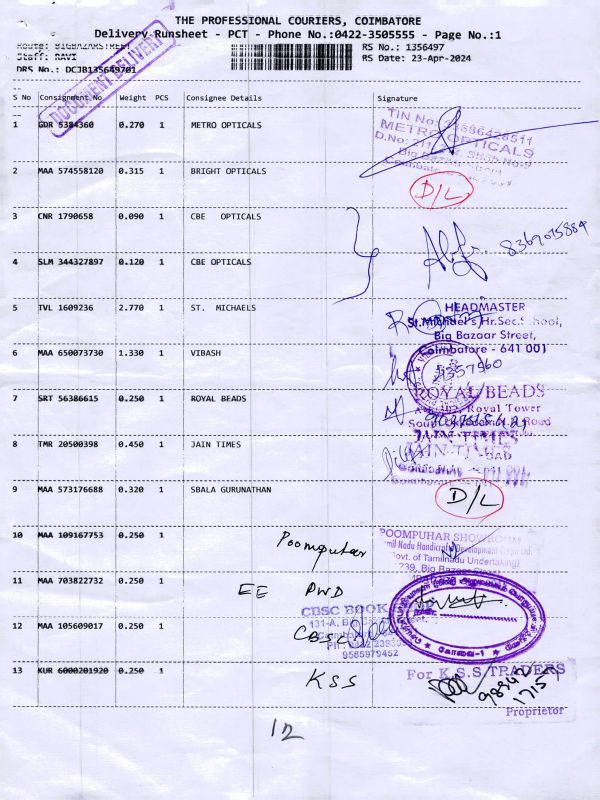 THE PROFESSIONAL COURIERS, COIMBATORE
Delivery Runsheet - PCT - Phone No.:0422-3505555 - Page No.:1
Route: BIGBAZARSTREET RS No.: 1356497
Staff: RAVI RS Date: 23-Apr-2024
DRS No.: DCJB135649701
DOCUMENT DELIVERY
S No Consignment No Weight PCS Consignee Details Signature
1 GDR 5384360 0.270 1 METRO OPTICALS
TIN No:
METRO OPTICALS
2 MAA 574558120 0.315 1 BRIGHT OPTICALS D/L
3 CNR 1790658 0.090 1 CBE OPTICALS
8369015884
4 SLM 344327897 0.120 1 CBE OPTICALS
5 TVL 1609236 2.770 1 ST. MICHAELS
HEADMASTER
St.Michael's Hr.Sec.School,
Big Bazaar Street,
Coimbatore - 641 001
6 MAA 650073730 1.330 1 VIBASH
7 SRT 56386615 0.250 1 ROYAL BEADS
ROYAL BEADS
Royal Tower
Road
8 TMR 20500398 0.450 1 JAIN TIMES
JAIN TIMES
9 MAA 573176688 0.320 1 SBALA GURUNATHAN D/L
10 MAA 109167753 0.250 1 Poompuhar
POOMPUHAR SHOWROOM
Govt. of Tamilnadu Undertaking)
239, Big Bazaar Street
11 MAA 703822732 0.250 1 EE PWD
கோவை-1
CBSC BOOK
131-A,
12 MAA 105609017 0.250 1 CBSC
9585979452
13 KUR 6000201920 0.250 1 KSS
For K.S.S TRADERS
Proprietor
12